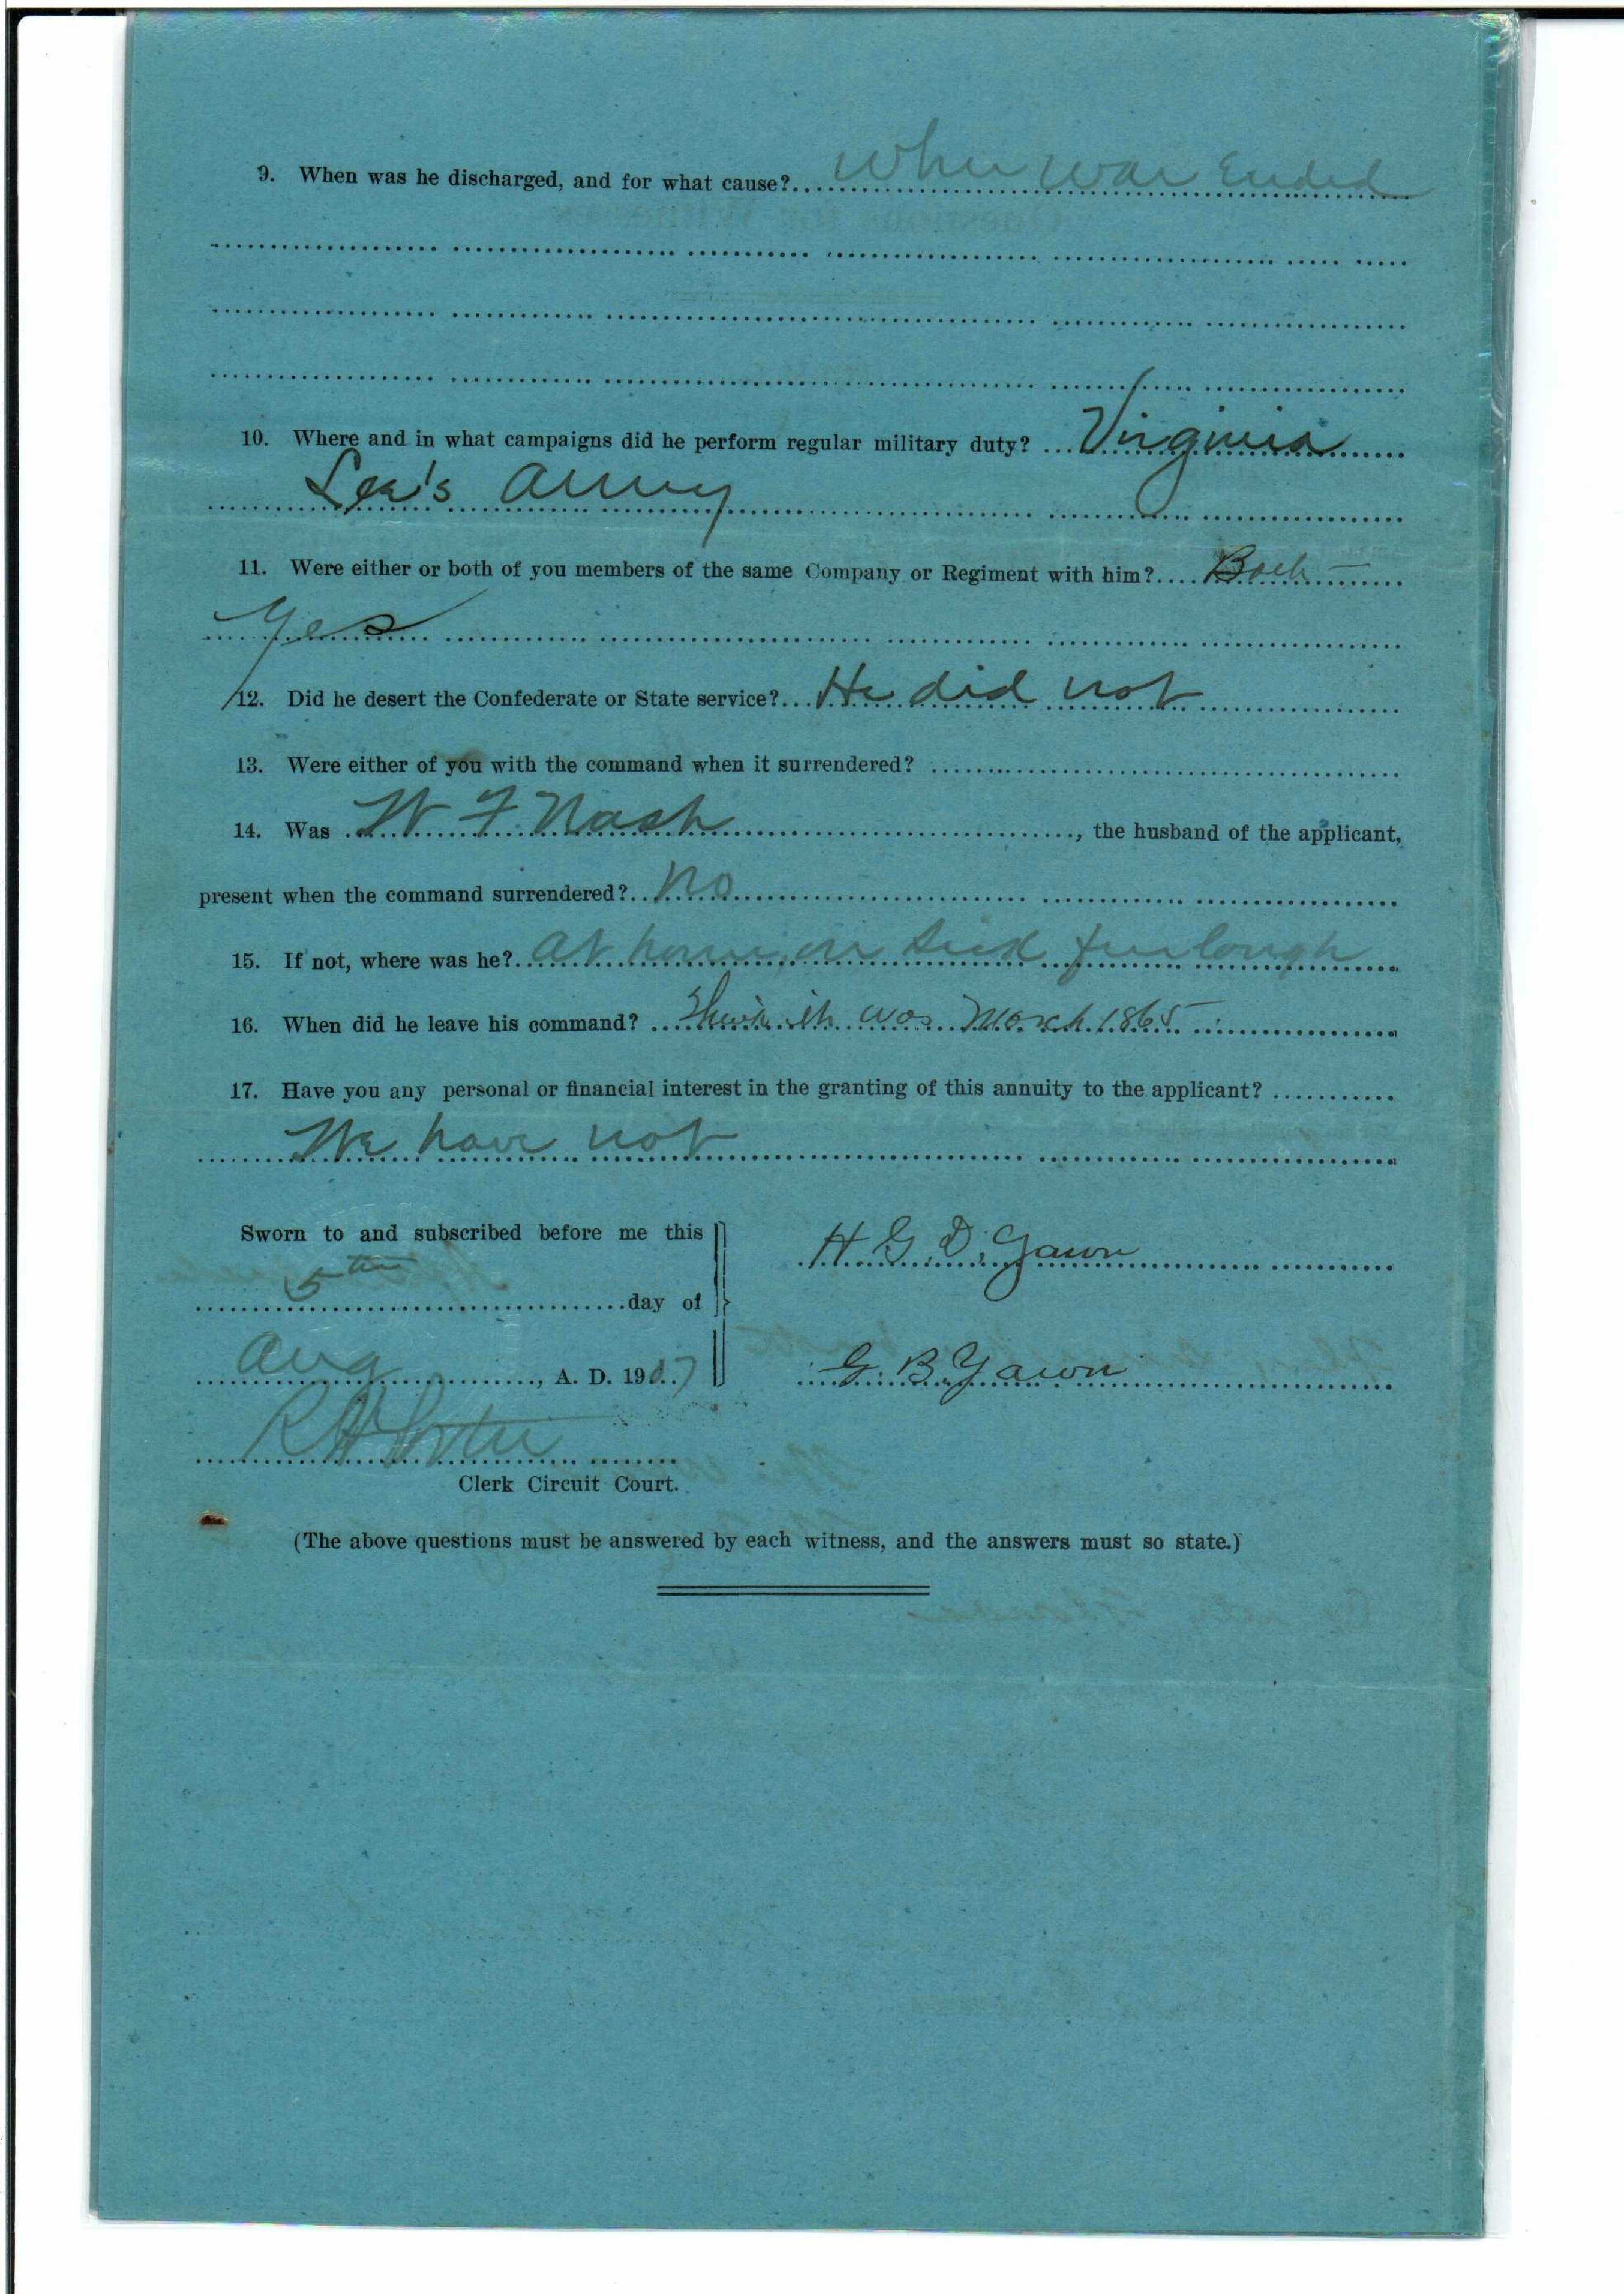 9. When was he discharged, and for what cause? When War Ended
10. Where and in what campaigns did he perform regular military duty? Virginia
Lee's Army
11. Were either or both of you members of the same Company or Regiment with him? Both —
Yes
12. Did he desert the Confederate or State service? He did not
13. Were either of you with the command when it surrendered?
14. Was W F Nash, the husband of the applicant,
present when the command surrendered? No
15. If not, where was he? at home on sick furlough
16. When did he leave his command? Think it was March 1865
17. Have you any personal or financial interest in the granting of this annuity to the applicant?
We have not
Sworn to and subscribed before me this
5th day of
Aug, A. D. 1907
H. G. D. Yawn
G. B. Yawn
Clerk Circuit Court.
(The above questions must be answered by each witness, and the answers must so state.)